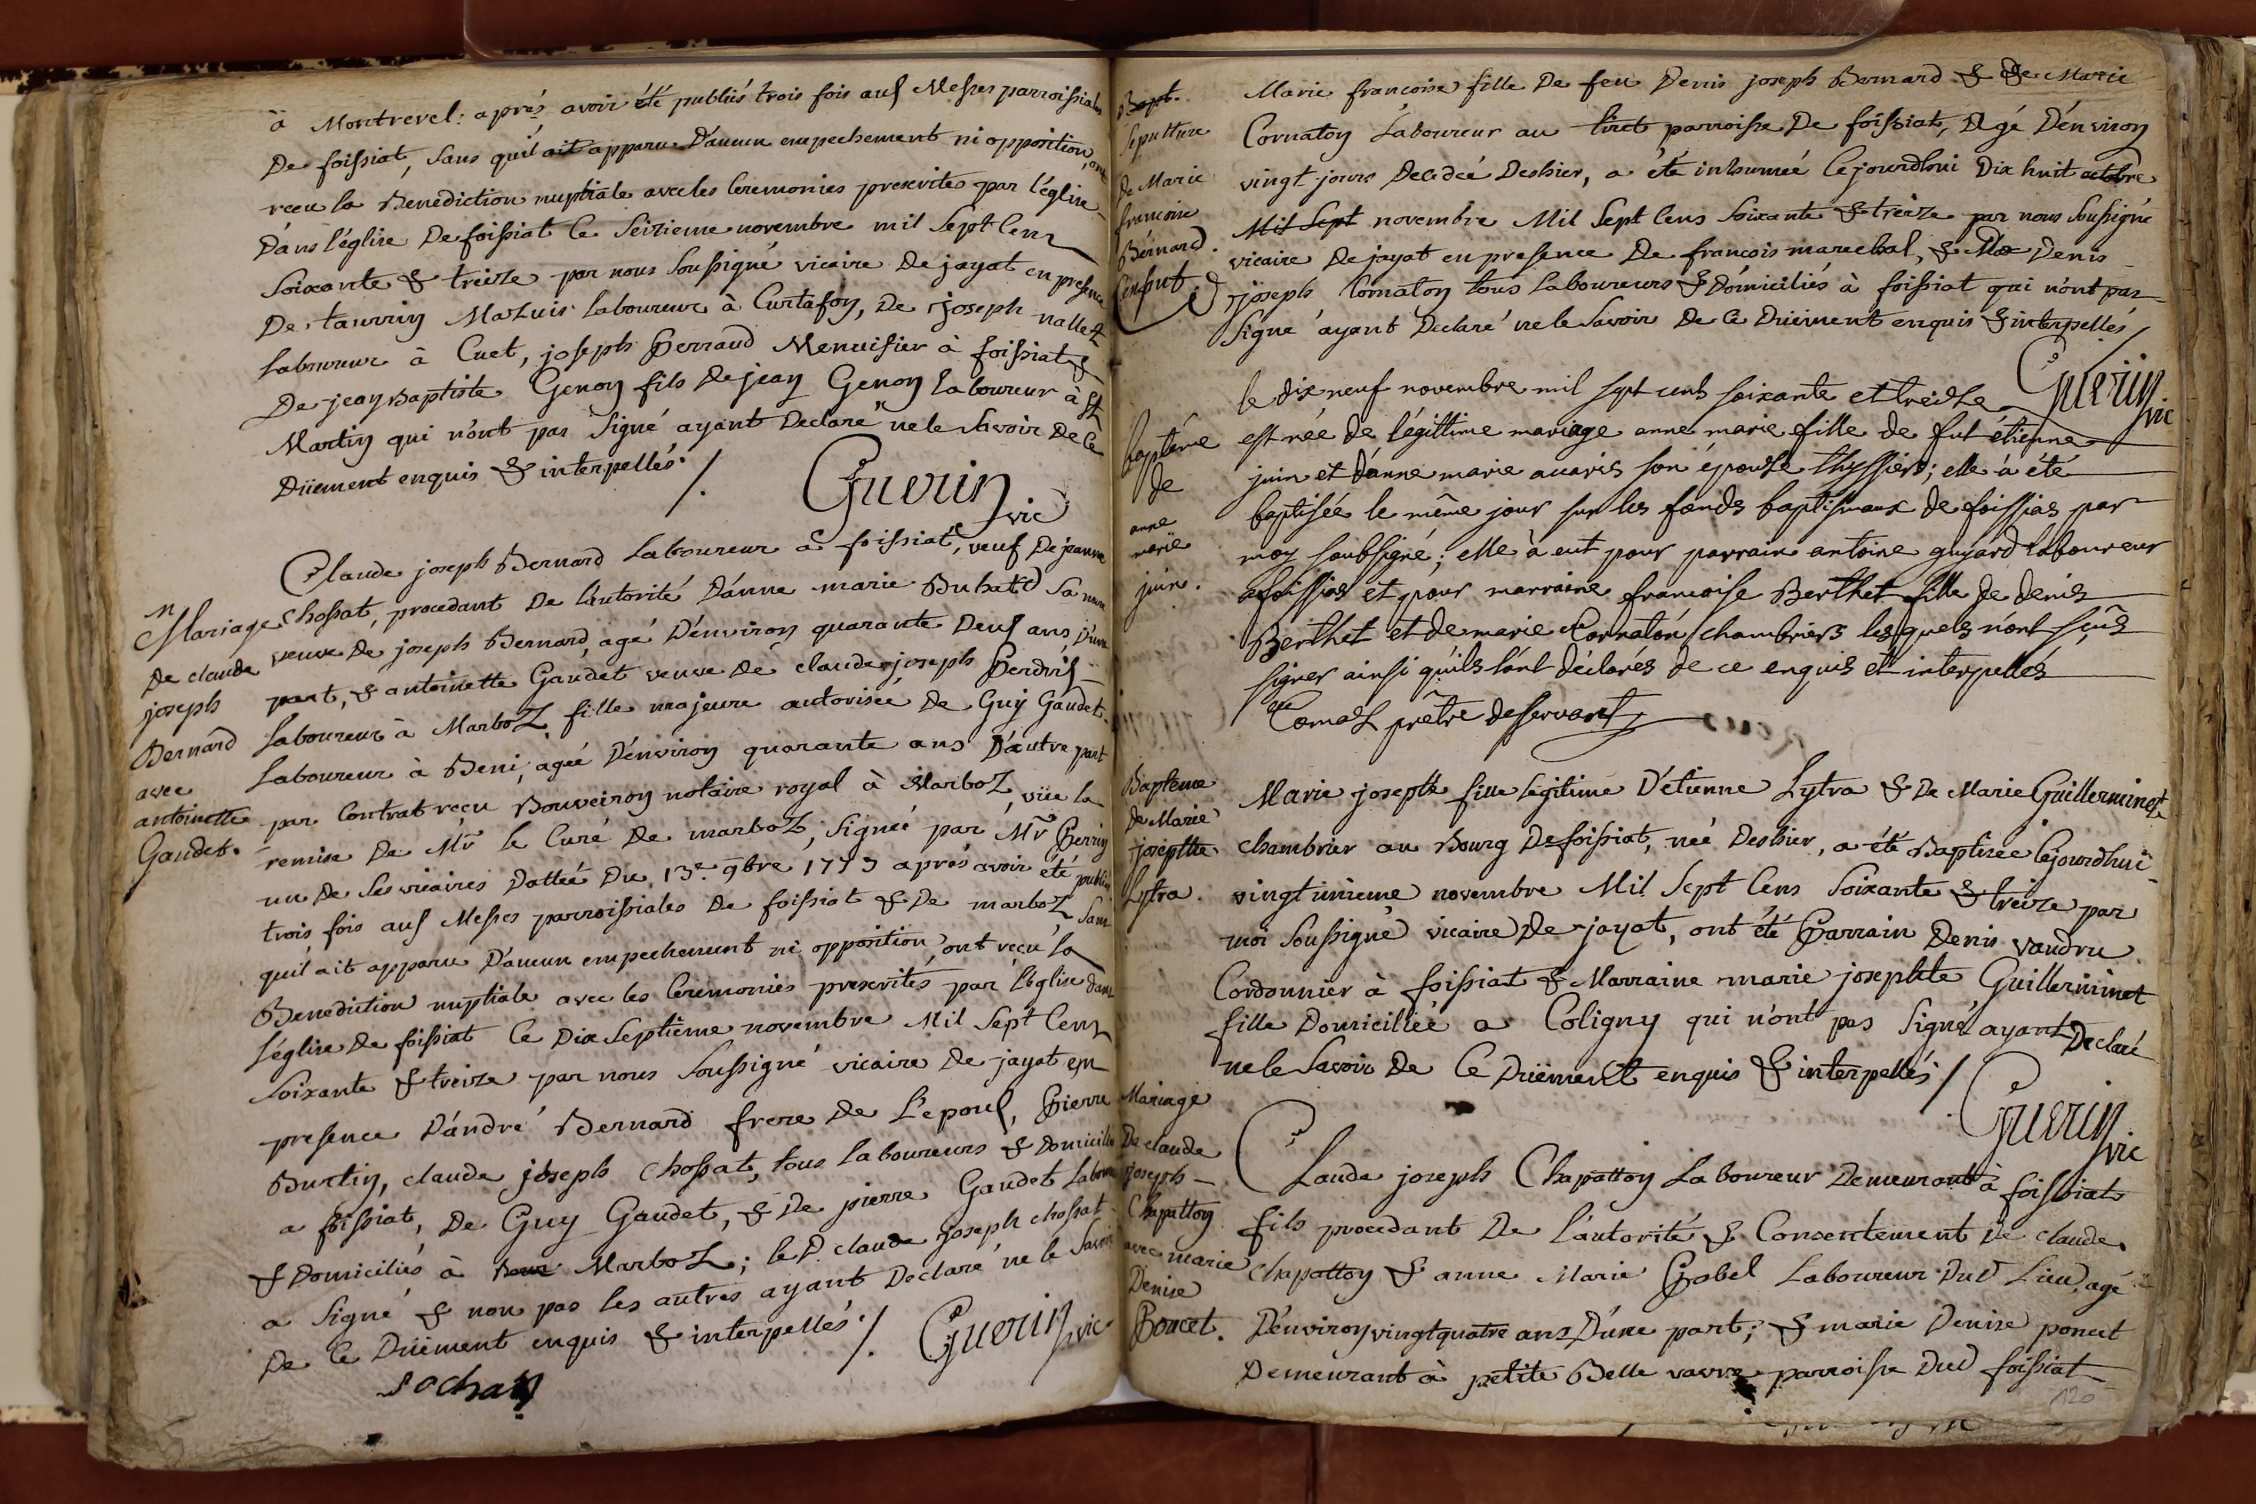 à Montrevel: aprés avoir été publiés trois fois aux Messes parroissiales
De foissiat, sans quil ait apparu D'aucun empechement ni opposition, ont
reçu la Benediction nuptiale avec les Ceremonies prescrites par l'église
Dans l'église De foissiat le seizieme novembre mil sept Cens
soixante & treize par nous soussigné vicaire De jayat en presence
De taurin Mazuis laboureur à Curtafon, De joseph nallet
laboureur à Cuet, joseph Perraud Menuisier à foissiat &
De jean Baptiste Genon fils De jean Genon laboureur à St
Martin qui n'ont pas signé ayant Declaré ne le savoir De Ce
Düement enquis & interpellés ./.
Guerin vic
Mariage
De claude
joseph
Bernard
avec
antoinette
Gaudet.
Claude joseph Bernard laboureur à foissiat, veuf De jeanne
Chossat, procedant De l'autorité D'anne marie Buhatd sa mere
veuve De joseph Bernard, agé D'environ quarante Deux ans D'une
part, & antoinette Gaudet veuve De claude joseph Perdrix
laboureur à Marboz, fille majeure autorisée De Guy Gaudet
laboureur à Beni, agée D'environ quarante ans D'autre part
par Contrat reçu Bouveiron notaire royal à Marboz, vüe la
remise De Mr le Curé De marboz, signée par Mr Perrin
un De ses vicaires Dattée Du 13e 9bre 1773 aprés avoir été publiés
trois fois aux Messes parroissiales De foissiat & De marboz sans
quil ait apparu D'aucun empechement ni opposition, ont reçu la
Benediction nuptiale avec les Ceremonies prescrites par l'église dans
l'église De foissiat Ce Dix septième novembre Mil sept Cens
soixante & treize par nous soussigné vicaire De jayat en
presence D'andré Bernard frere De L'epoux, Pierre
Burtin, claude joseph Chossat, tous laboureurs & Domiciliés
a foissiat, De Guy Gaudet, & De pierre Gaudet labour
& Domiciliés à Marboz; le D claude joseph chossat
a signé & non pas les autres ayant Declaré ne le savoir
De Ce Düement enquis & interpellés ./. Guerin vic
Bapt.
sepulture
de Marie
francoise
Bérnard.
Marie francoise fille De feu Denis joseph Bernard & De Marie
Cornaton laboureur au tiret parroisse De foissiat, agé D'environ
vingt jours Decedée Deshier, a été inhumeé Cejourdhui Dix huit octobre
Mil Sept novembre Mil Sept Cens soixante & treize par nous soussigné
vicaire De jayat en presence De francois marechal, & Denis
joseph Cornaton tous laboureurs & Domiciliés à foissiat qui n'ont pas
signé ayant Declaré ne le savoir De Ce Düement enquis & interpellés ./
Guerin vic
baptême
de
anne
marie
juin.
le dix neuf novembre mil sept cents soixante et treidze
est née de légittime mariage anne marie fille de fut étienne
juin et d'anne marie auaris son épouse thyssiers; elle à été
baptisée le même jour sur les fonds baptismaux de foissias par
moy soubsigné; elle à eut pour parrain antoine guyard laboureur
a foissias et pour marraine francoise Berthet fille de denis
Berthet et de marie Cornaton chambriers lesquels n'ont sçûs
signer ainsi quils l'ont déclarés de ce enquis et interpellés
Comaz prêtre desservant
Baptème
De Marie
josephte
Lytra.
Marie josephte fille legitime D'étienne Lytra & De Marie Guillerminet
chambrier au Bourg De foissiat, née Deshier, a été Baptisée Cejourdhui
vingt unieme novembre Mil Sept Cens soixante & treize par
moi soussigné vicaire De jayat, ont été Parrain Denis vaudru
Cordonnier à foissiat & Marraine marie josephte Guillerminet
fille Domiciliée a Coligny qui n'ont pas signé ayant Declaré
ne le savoir De Ce Düement enquis & interpellés ./.
Guerin vic
Mariage
De claude
joseph
Chapatton
avec marie
Denise
Poncet.
Claude joseph Chapatton laboureur Demeurant à foissiat
fils procedant De l'autorité & Consentement De claude
chapatton & anne Marie Gobel laboureur Dud Lieu, agé
D'environ vingt quatre ans D'une part; & marie Denise poncet
Demeurant à petite Belle vavre parroisse Dud foissiat
120